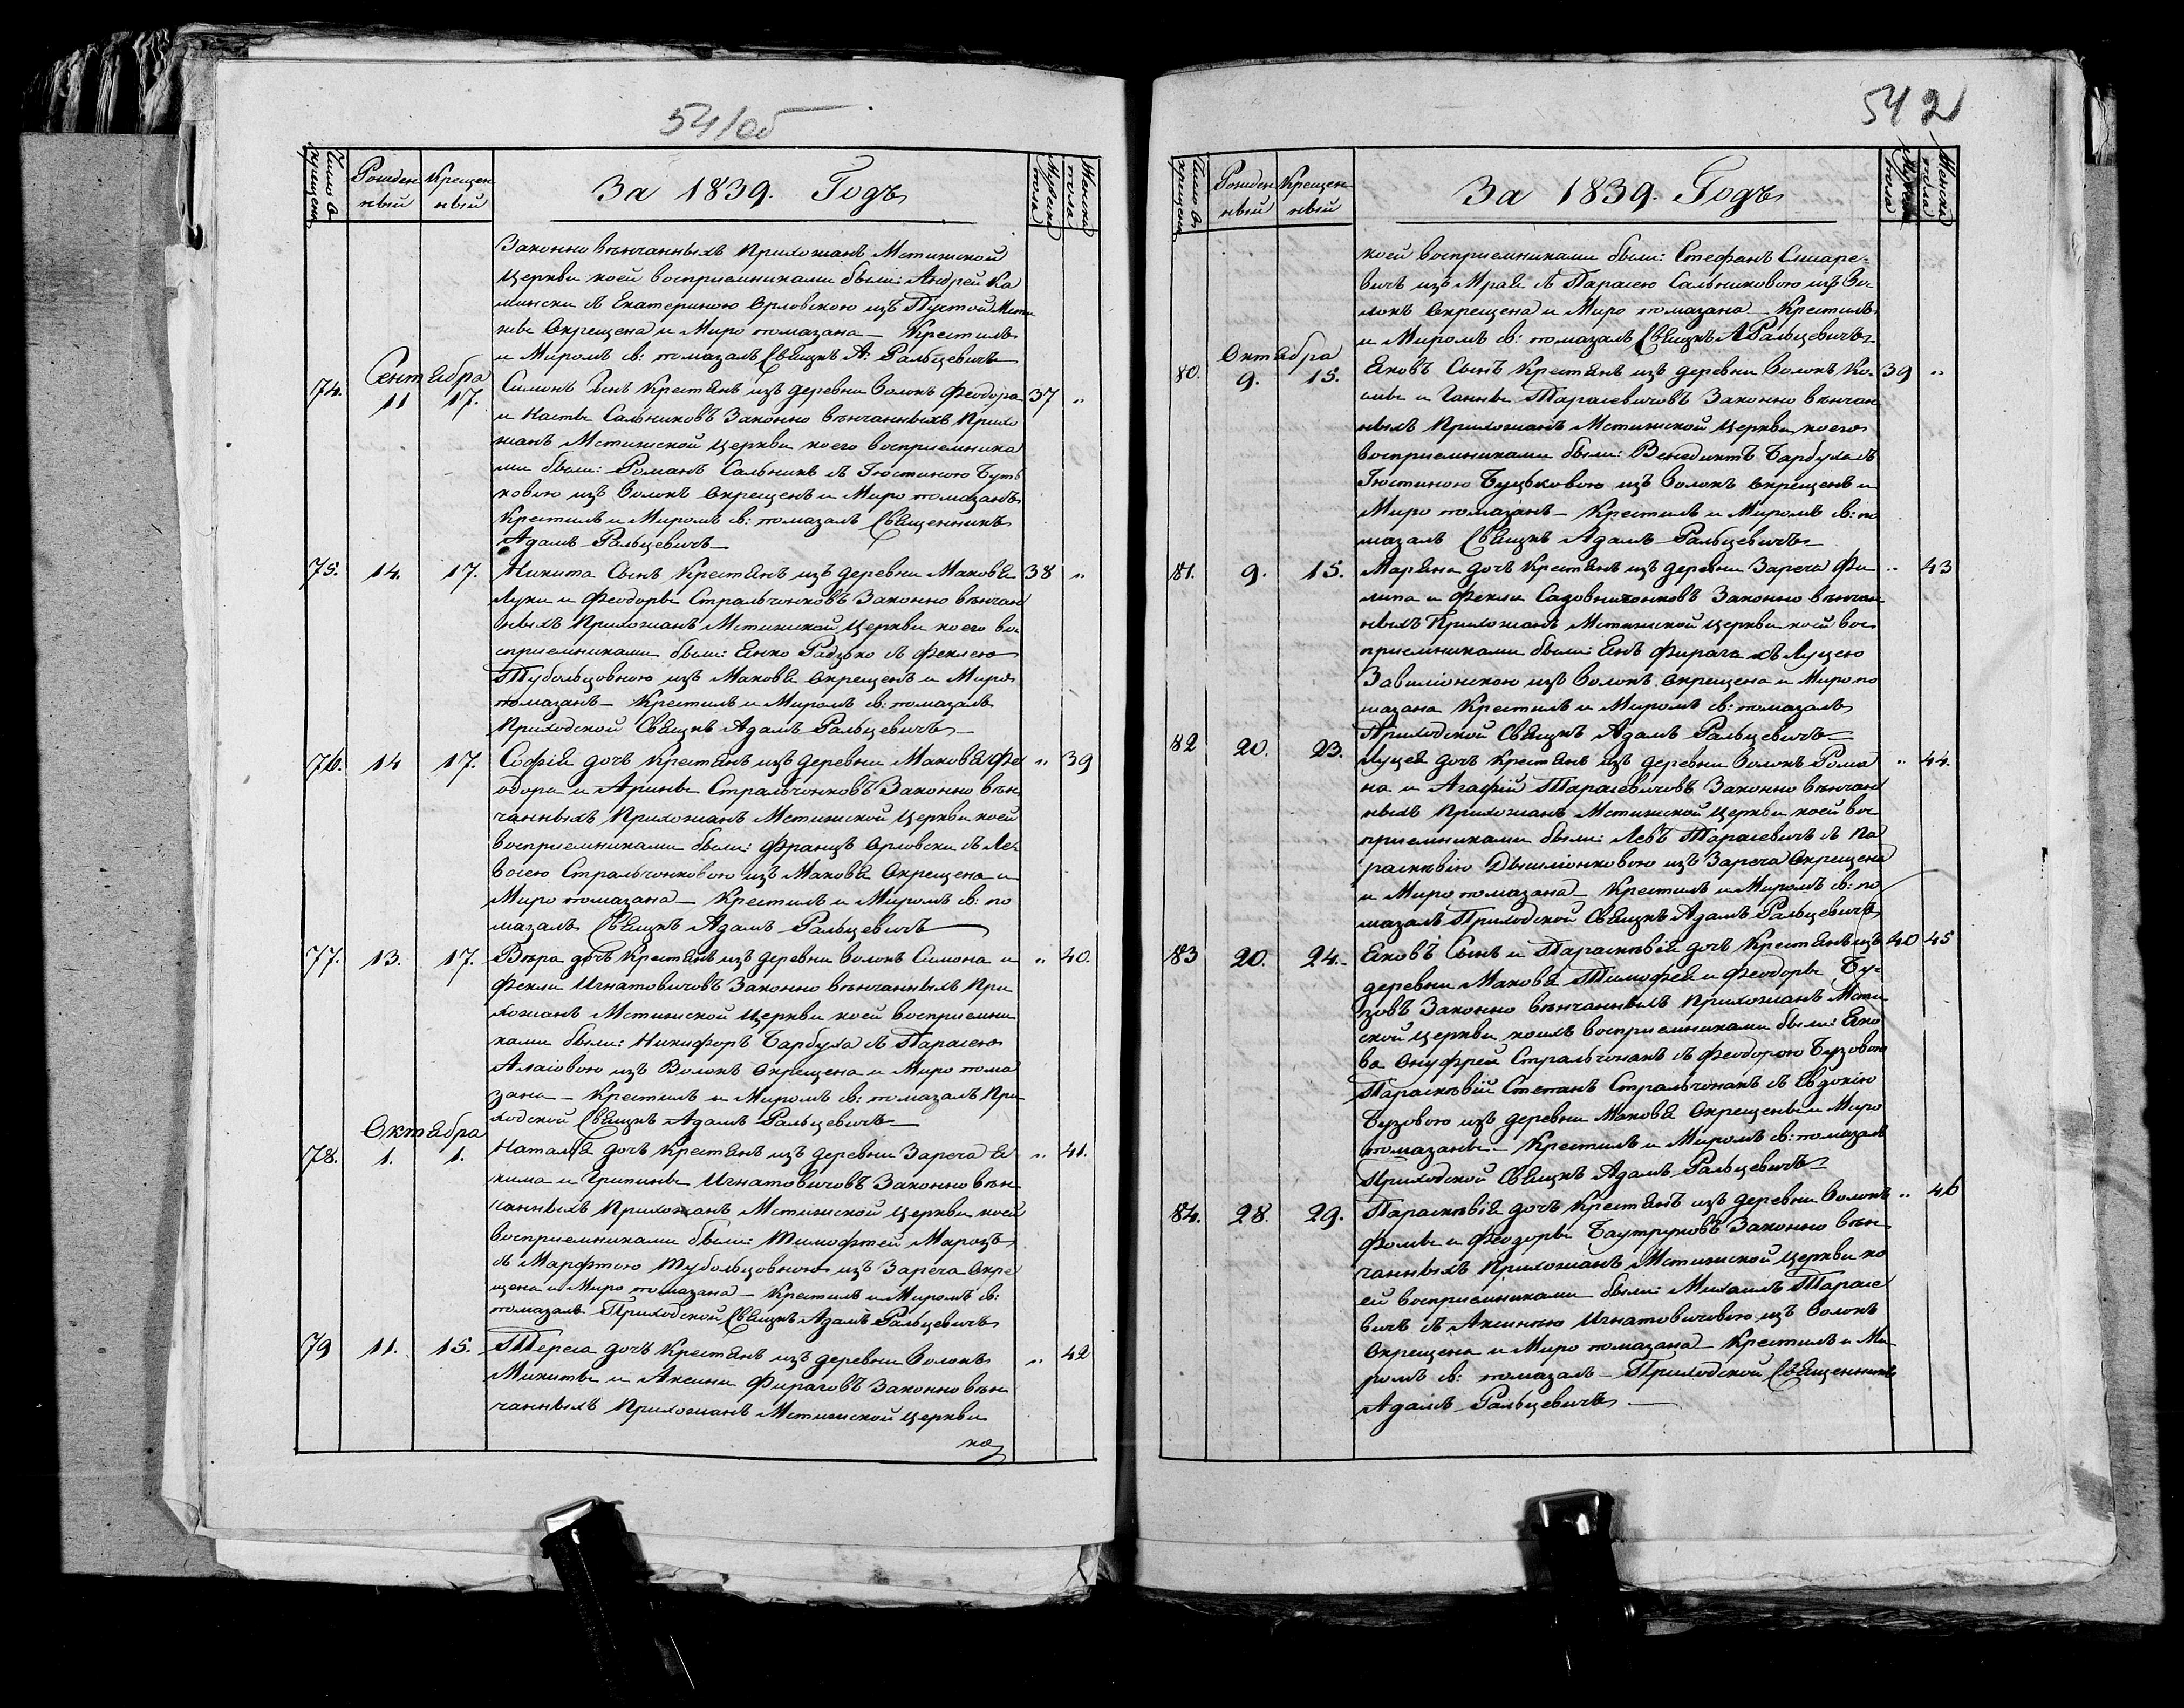 541об
Число крещен
Рожден ный
Крещен ный
За 1839. Годъ
Мужска пола
Женска пола
Законно вѣнчанныхъ Прихожанъ Мстижской
Церкви коей восприемниками были: Андрей Ка
мински съ Екатериною Орловскою изъ Пустой Мсти
жи Окрещена и Миро помазана — Крестилъ
и Миромъ св: помазалъ Свящнкъ А: Ральцевичъ
Сентября
74. 11 17. Симонъ Сынъ Крестянъ изъ деревни Волокъ Феодора 37 „
и Насты Сальниковъ Законно вѣнчанныхъ Прихо
жанъ Мстижской Церкви коего восприемника
ми были: Романъ Сальникъ съ Іюстиною Буть
ковою изъ Волокъ Окрещенъ и Миро помазанъ
Крестилъ и Миромъ св: помазалъ Священникъ
Адамъ Ральцевичъ
75. 14. 17. Никита Сынъ Крестянъ изъ деревни Маковя 38 „
Луки и Феодоры Стральчонковъ Законно вѣнчан
ныхъ Прихожанъ Мстижской Церкви коего во
сприемниками были: Янко Радзько съ Феклею
Тубольцовною изъ Маковя Окрещенъ и Миро
помазанъ — Крестилъ и Миромъ св: помазалъ
Приходской Свящнкъ Адамъ Ральцевичъ
76. 14 17. Софія дочъ Крестянъ изъ деревни Маковя Фе „ 39
одора и Арины Стральчонковъ Законно вѣн
чанныхъ Прихожанъ Мстижской Церкви коей
восприемниками были: Францъ Орловски съ Ле
восею Стральчонковою изъ Маковя Окрещена и
Миро помазана — Крестилъ и Миромъ св: по
мазалъ Свящнкъ Адамъ Ральцевичъ
77. 13. 17. Вѣра дочъ Крестянъ изъ деревни Волокъ Симона и „ 40.
Фекли Игнатовичовъ Законно вѣнчанныхъ При
хожанъ Мстижской Церкви коей восприемни
ками были: Никифоръ Барбуха съ Парасею
изъ Волокъ Окрещена и Миро пома
зана — Крестилъ и Миромъ св: помазалъ При
ходской Свящнкъ Адамъ Ральцевичъ
Октября
78. 1. 1. Наталя дочъ Крестянъ изъ деревни Зареча Я „ 41.
кима и Грипины Игнатовичовъ Законно вѣн
чанныхъ Прихожанъ Мстижской Церкви коей
восприемниками были: Тимофтей Марозъ
съ Марфтою Тубольцовною изъ Зареча Окре
щена и Миро помазана — Крестилъ и Миромъ св:
помазалъ Приходской Свящнкъ Адамъ Ральцевичъ
79 11. 15. Тереса дочъ Крестянъ изъ деревни Волокъ „ 42
Микиты и Аксини Фираговъ Законно вѣн
чанныхъ Прихожанъ Мстижской Церкви
ко
542
Число крещен
Рожден ный
Крещен ный
За 1839. Годъ
Мужск пола
Женска пола
коей восприемниками были: Стефанъ Слиаре-
вичъ изъ Мрая съ Парасею Сальниковою изъ Во-
локъ Окрещена и Миро помазана — Крестилъ
и Миромъ св: помазалъ Свящнкъ А Ральцевичъ
Октября
80. 9. 15. Яковъ Сынъ Крестянъ изъ деревни Волокъ Ко- 39 „
симы и Ганны Тарасевичовъ Законно вѣнчан
ныхъ Прихожанъ Мстижской Церкви коего
восприемниками были: Венедиктъ Барбуха съ
Іюстиною Буцьковою изъ Волокъ Окрещенъ и
Миро помазанъ — Крестилъ и Миромъ св: по
мазалъ Свящнкъ Адамъ Ральцевичъ
81. 9. 15. Маряна дочъ Крестянъ изъ деревни Зареча Фи „ 43
липа и Фекли Садовничонковъ Законно вѣнчан
ныхъ Прихожанъ Мстижской Церкви коей вос
приемниками были: Янъ Фирага съ Луцею
изъ Волокъ Окрещена и Миро по
мазана Крестилъ и Миромъ св: помазалъ
Приходской Свящнкъ Адамъ Ральцевичъ
82 20. 23. Луцея дочъ Крестянъ изъ деревни Волокъ Рома „ 44.
на и Агафіи Тарасевичовъ Законно вѣнчан
ныхъ Прихожанъ Мстижской Церкви коей вос
приемниками были: Левъ Тарасевичъ съ Па
раскѣвію изъ Зареча Окрещена
и Миро помазана — Крестилъ и Миромъ св: по
мазалъ Приходской Свящнкъ Адамъ Ральцевичъ
83 20. 24. Яковъ Сынъ и Параскѣвія дочъ Крестянъ изъ 40 45
деревни Маковя Тимофея и Феодоры Бу-
зовъ Законно вѣнчанныхъ Прихожанъ Мстиж
ской Церкви коихъ восприемниками были: Яко
ва Онуфрей Стральчонакъ съ Феодорою Бузовою
Параскѣвіи Степанъ Стральчонакъ съ Евдокію
Бузовою изъ деревни Маковя Окрещены и Миро
помазаны — Крестилъ и Миромъ св: помазалъ
Приходской Свящнкъ Адамъ Ральцевичъ
84. 28. 29. Параскѣвія дочъ Крестянъ изъ деревни Волокъ „ 46
Фомы и Феодоры Баутруковъ Законно вѣн
чанныхъ Прихожанъ Мстижской Церкви ко
ей восприемниками были: Михаилъ Тарасе
вичъ съ Аксинею Игнатовичовою изъ Волокъ
Окрещена и Миро помазана — Крестилъ и Ми
ромъ св: помазалъ — Приходской Священникъ
Адамъ Ральцевичъ